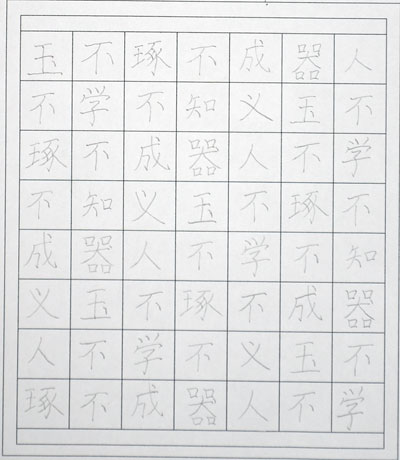 玉不琢不成器人
不学不知义玉不
琢不成器人不学
不知义玉不琢不
成器人不学不知
义玉不琢不成器
人不学不义玉不
琢不成器人不学